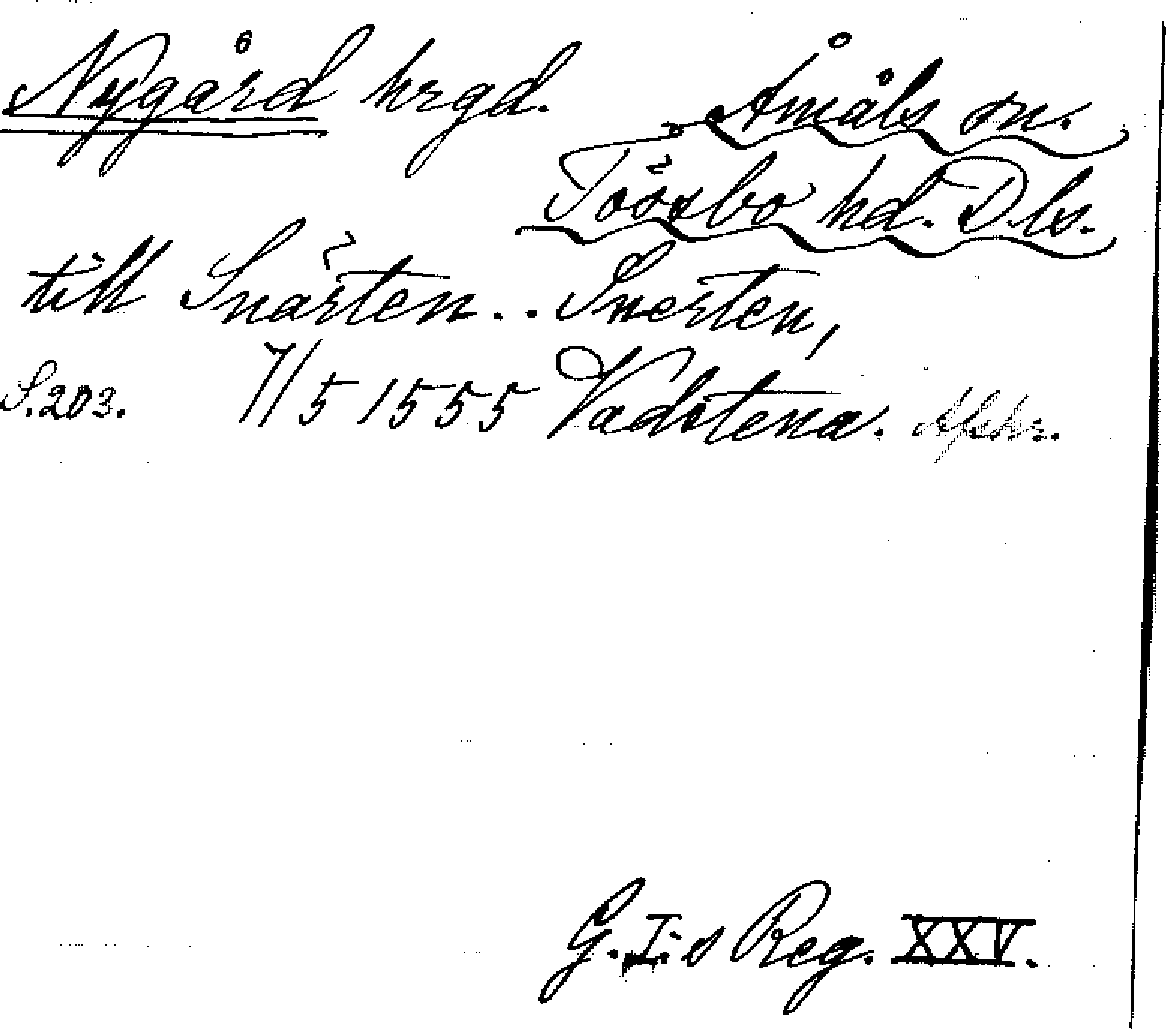 Nygård hrgd. Åmåls sn.
Tössbo hd. Dls.
till Snärten.. Snerten,
S. 203. 7/5 1555 Vadstena. Afskr.
G. I:s Reg. XXV.